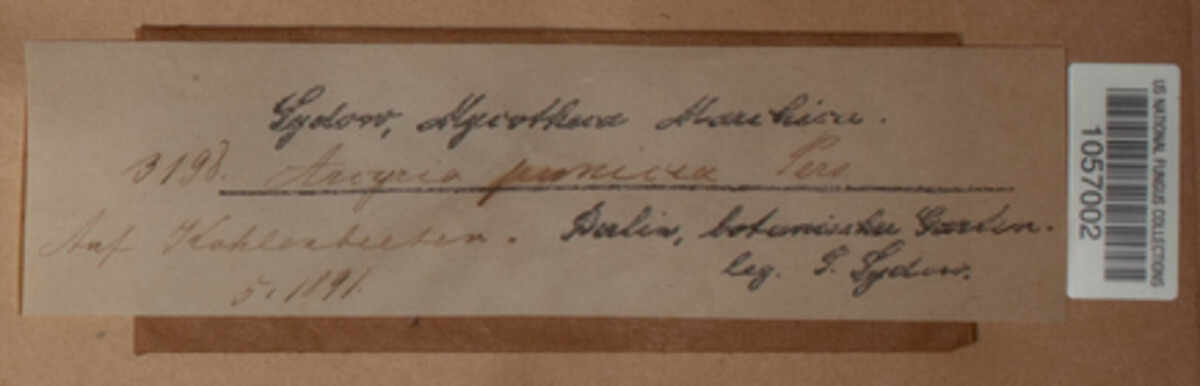 Sydow, Mycotheca Marchica.
3198. Arcyria punicea Pers.
Auf Kohlenbeeten. Berlin, botanischer Garten.
5. 1891. leg. P. Sydow.
US NATIONAL FUNGUS COLLECTIONS
1057002